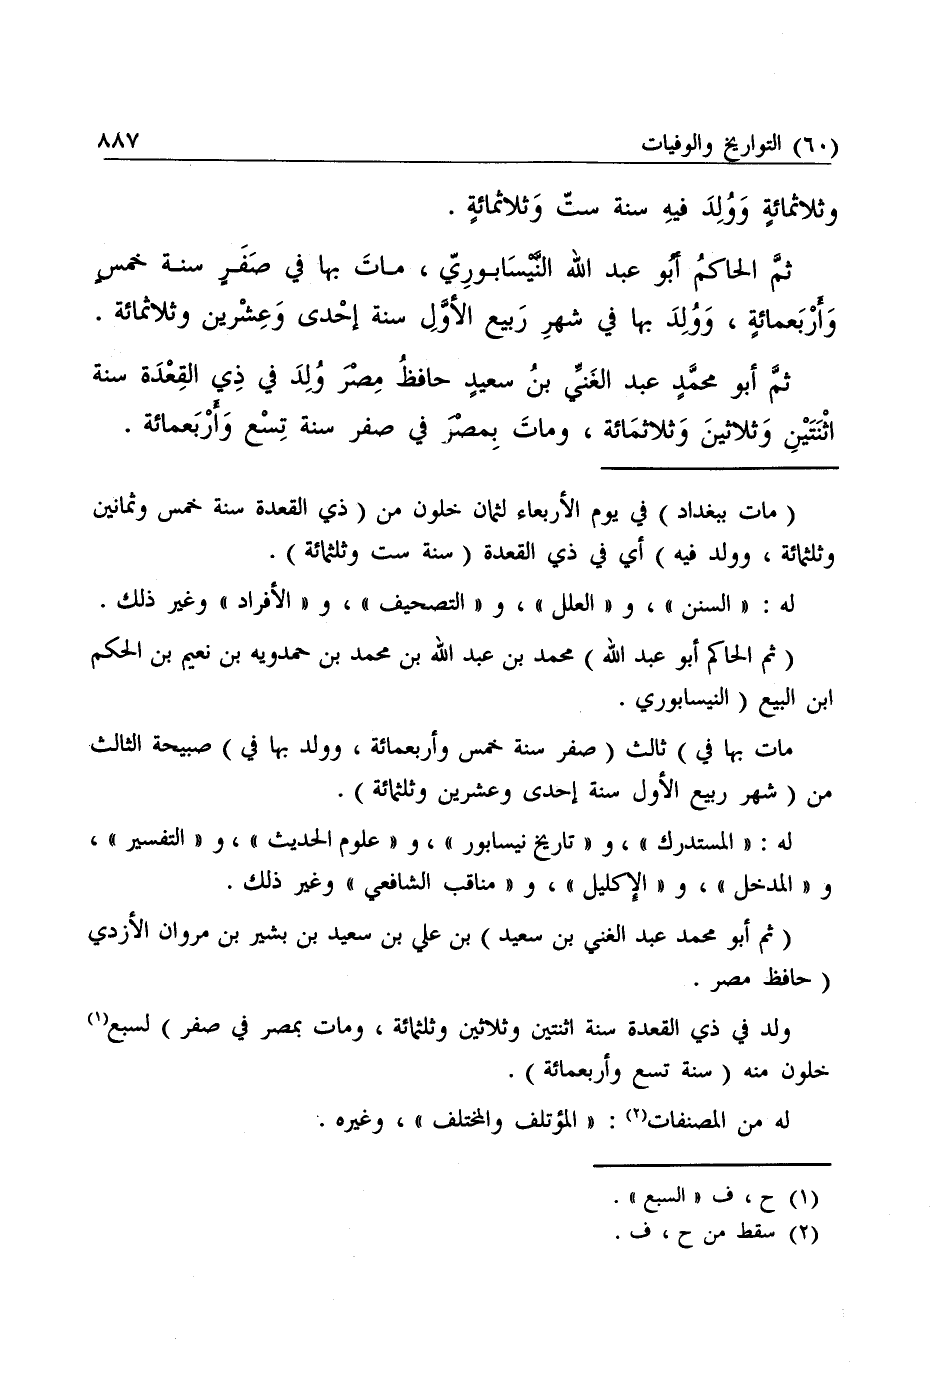 (٦٠) التواريخ والوفيات ٨٨٧
وثلاثمائةٍ وَوُلِدَ فيهِ سنة ستّ وَثلاثمائةٍ .
ثمَّ الحاكمُ أبُو عبد الله النَّيْسَابـورِيّ ، مـاتَ بها في صَفَـرٍ سنـة خمسٍ
وَأَرْبَعمائةٍ ، وَوُلِدَ بها في شهرِ رَبيع الأوَّلِ سنة إحْدى وَعِشْرين وثلاثمائة .
ثمَّ أبو محمَّدٍ عبد الغَنيِّ بنُ سعيدٍ حافظُ مِصْرَ وُلِدَ في ذِي القِعْدَة سنة
اثْنَتَيْنِ وَثلاثينَ وَثلاثمَائة ، وماتَ بِمصْرَ في صفر سنة تِسْع وَأَرْبَعمائة .
( مات ببغداد ) في يوم الأربعاء لثمان خلون من ( ذي القعدة سنة خمس وثمانين
وثلثمائة ، وولد فيه ) أي في ذي القعدة ( سنة ست وثلثمائة ) .
له : « السنن » ، و « العلل » ، و « التصحيف » ، و « الأفراد » وغير ذلك .
( ثم الحاكم أبو عبد الله ) محمد بن عبد الله بن محمد بن حمدويه بن نعيم بن الحكم
ابن البيع ( النيسابوري .
مات بها في ) ثالث ( صفر سنة خمس وأربعمائة ، وولد بها في ) صبيحة الثالث
من ( شهر ربيع الأول سنة إحدى وعشرين وثلثمائة ) .
له : « المستدرك » ، و « تاريخ نيسابور » ، و « علوم الحديث » ، و « التفسير » ،
و « المدخل » ، و « الإكليل » ، و « مناقب الشافعي » وغير ذلك .
( ثم أبو محمد عبد الغني بن سعيد ) بن علي بن سعيد بن بشير بن مروان الأزدي
( حافظ مصر .
ولد في ذي القعدة سنة اثنتين وثلاثين وثلثمائة ، ومات بمصر في صفر ) لسبع(١)
خلون منه ( سنة تسع وأربعمائة ) .
له من المصنفات(٢) : « المؤتلف والمختلف » ، وغيره .
(١) ح ، ف « السبع » .
(٢) سقط من ح ، ف .